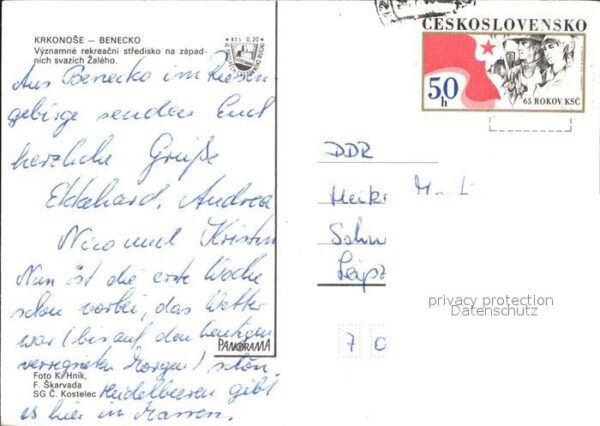 KRKONOŠE – BENECKO
Významné rekreační středisko na západ-
ních svazích Žalého.
Kčs 0,20
Aus Benecko im Riesen-
gebirge senden Euch
herzliche Grüße
Ekkehard, Andrea
Nico und Kristin
Nun ist die erste Woche
schon vorbei, das Wetter
war (bis auf den heutigen
verregneten Morgen) schön.
Heidelbeeren gibt
es hier in Massen.
PANORAMA
Foto K. Hník,
F. Škarvada
SG Č. Kostelec
ČESKOSLOVENSKO
50h
65 ROKOV KSČ
DDR
privacy protection
Datenschutz
7 0